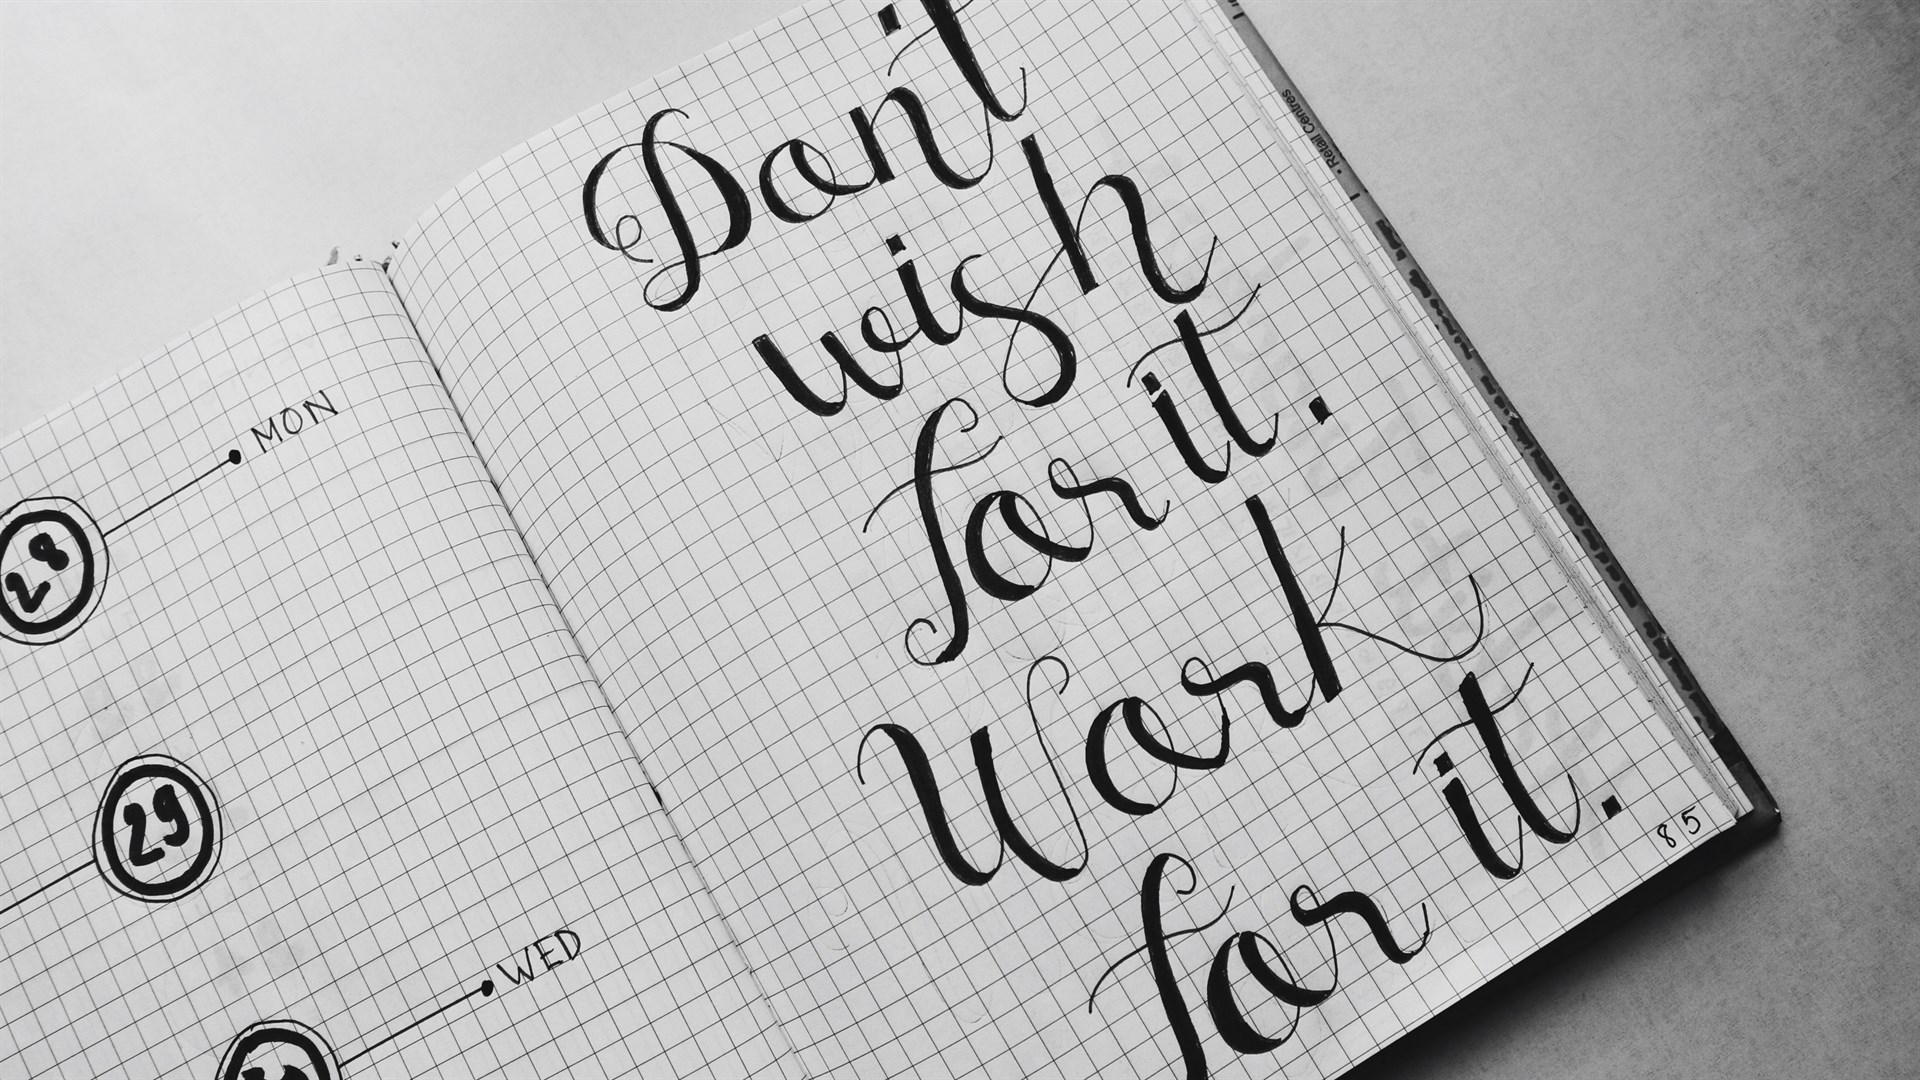 MON
28
29
WED
Don't
wish
for it.
Work
for it.
85
Retail Centres